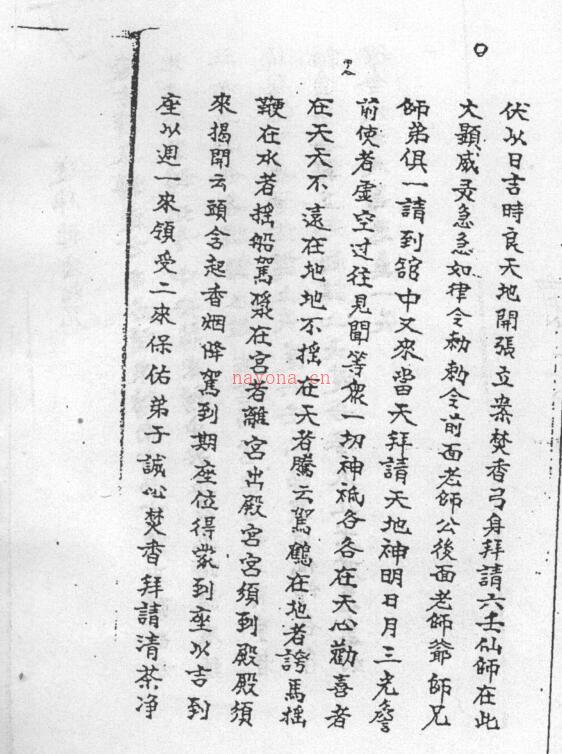 伏以日吉時良天地開張立案焚香弓身拜請六壬仙師在此
大顯威灵急急如律令勅勅令前面老師公後面老師爺師兄
師弟俱一請到館中又來當天拜請天地神明日月三光詹
前使者虚空过往見聞等衆一切神祇各各在天心勸喜者
在天天不遠在地地不摇在天者騰云駕鶴在地者誇馬摇
鞭在水者摇船駕漿在宫者離宫出殿宫宫須到殿殿須
來揭開云頭含起香烟降駕到期座位得蒙到座以吉到
座以週一來領受二來保佑弟子誠心焚香拜請清茶净
nayona.cn